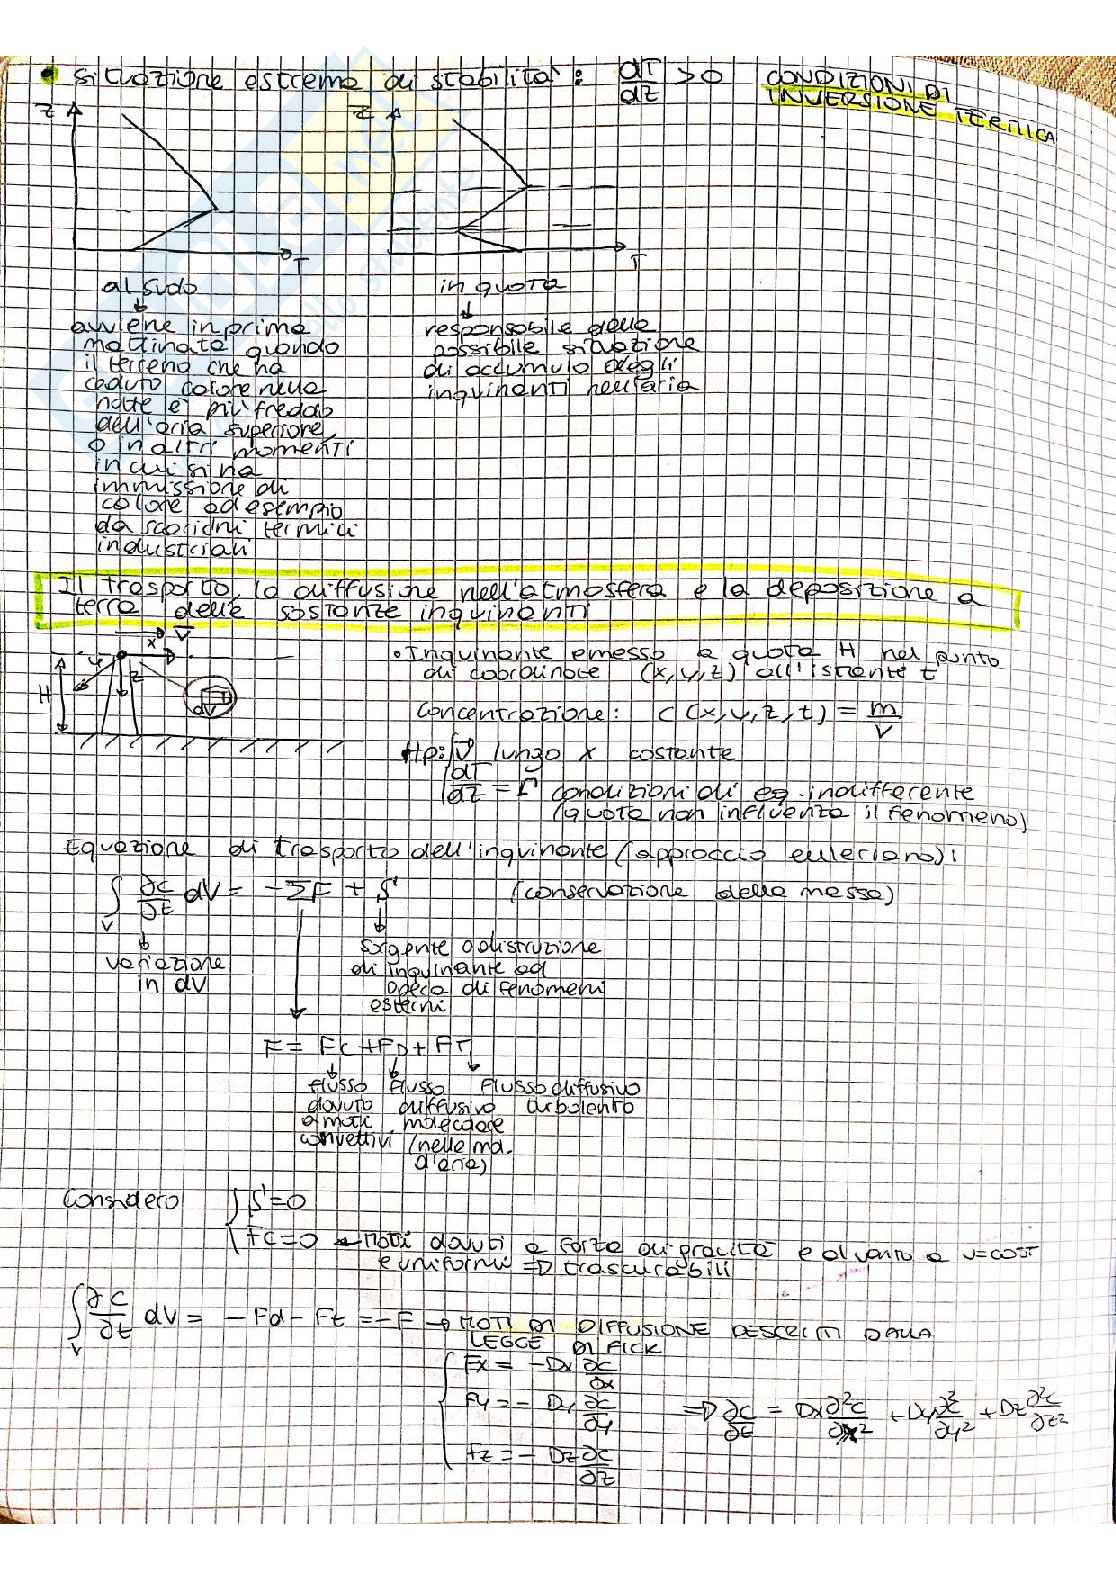 • situazione estrema di stabilità: dT/dz > 0 CONDIZIONI DI INVERSIONE TERMICA
z z
T T
al suolo
avviene in prima
mattinata quando
il terreno che ha
ceduto calore nella
notte è più freddo
dell'aria superiore,
o in altri momenti
in cui si ha
immissione di
calore ad esempio
da scarichi termici
industriali
in quota
responsabile della
possibile situazione
di accumulo degli
inquinanti nell'aria
Il trasporto, la diffusione nell'atmosfera e la deposizione a
terra delle sostanze inquinanti
v
x
y
z
H
dV
• Inquinante emesso a quota H nel punto
di coordinate (x,y,z) all'istante t
Concentrazione: C(x,y,z,t) = m/V
Hp: v lungo x costante
dT/dz = Γ condizioni di eq. indifferente
(quota non influenza il fenomeno)
Equazione di trasporto dell'inquinante (approccio euleriano):
∫V ∂c/∂t dV = -ΣF + S (conservazione della massa)
variazione
in dV
sorgente o distruzione
di inquinante ad
opera di fenomeni
esterni
F = Fc + FD + FT
flusso
dovuto
a moti
convettivi
flusso
diffusivo
molecolare
(nelle mol.
d'aria)
flusso diffusivo
turbolento
Considero { S=0
Fc=0 ← moti dovuti a forza di gravità e al vento a v=cost
e uniformi => trascurabili
∫V ∂c/∂t dV = -Fd - Ft = -F → MOTI DI DIFFUSIONE DESCRITTI DALLA
LEGGE DI FICK
Fx = -Dx ∂c/∂x
Fy = - Dy ∂c/∂y
Fz = - Dz ∂c/∂z
=> ∂c/∂t = Dx ∂²c/∂x² + Dy ∂²c/∂y² + Dz ∂²c/∂z²